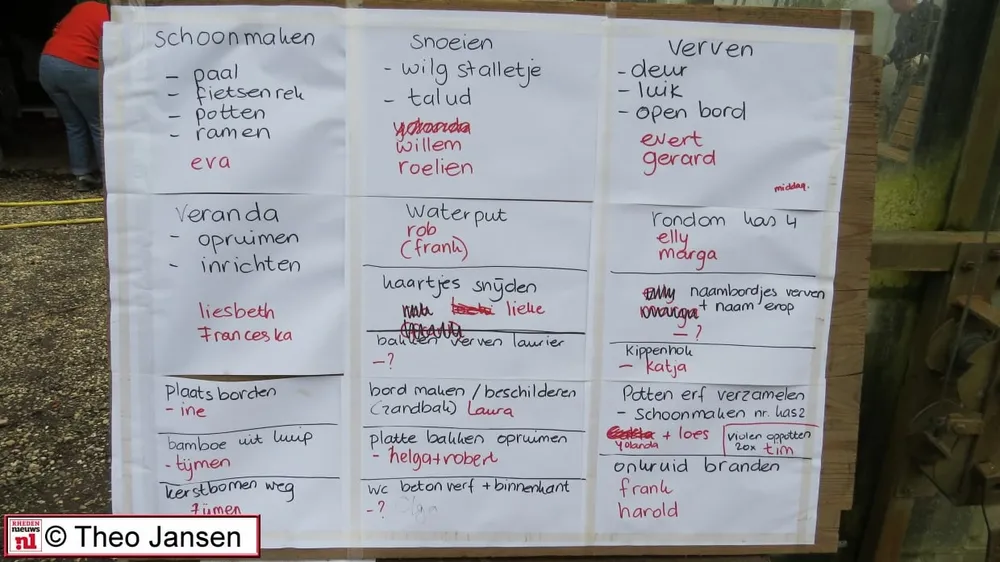 schoonmaken
- paal
- fietsenrek
- potten
- ramen
eva
snoeien
- wilg stalletje
- talud
yolanda
willem
roelien
verven
- deur
- luik
- open bord
evert
gerard
middag.
veranda
- opruimen
- inrichten
liesbeth
Franceska
waterput
rob
(frank)
kaartjes snijden
lieke
bakken verven laurier
- ?
rondom kas 4
elly
marga
elly naambordjes verven
marga + naam erop
- ?
kippenhok
- katja
plaats borden
- ine
bamboe uit kuip
- tijmen
kerstbomen weg
Tijmen
bord maken / beschilderen
(zandbak) Laura
platte bakken opruimen
- helga+robert
wc betonverf + binnenkant
- ?
Potten erf verzamelen
- schoonmaken nr. kas2
+ loes
yolanda
violen oppotten
20x tim
onkruid branden
frank
harold
RHEDEN
nieuws
.nl
© Theo Jansen